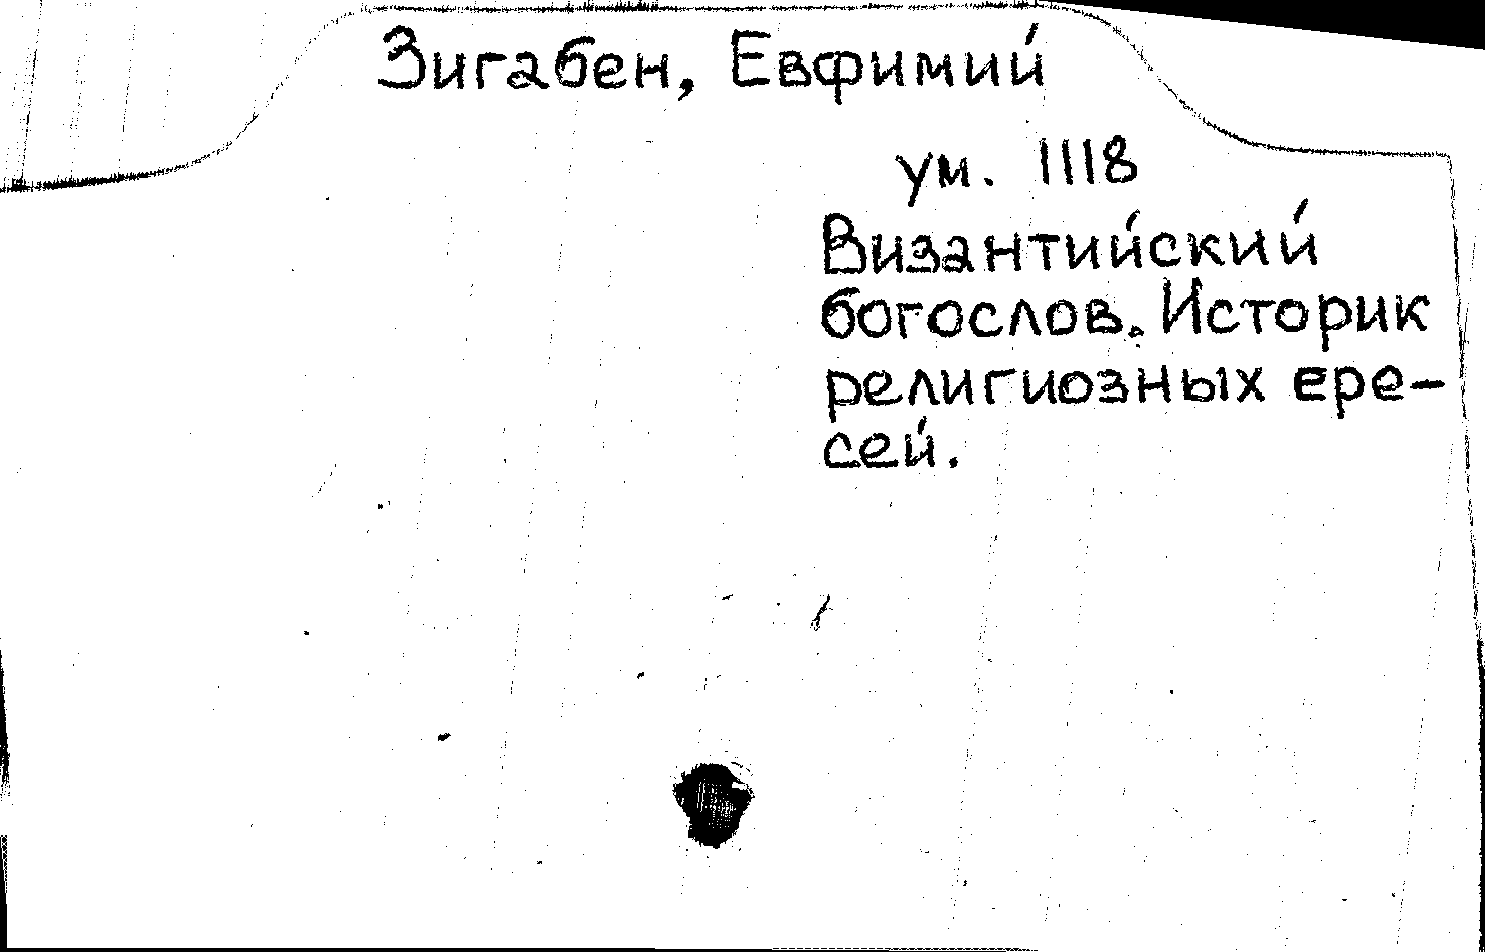 Зигабен, Евфимий
ум. 1118
Византийский
богослов. Историк
религиозных ере-
сей.